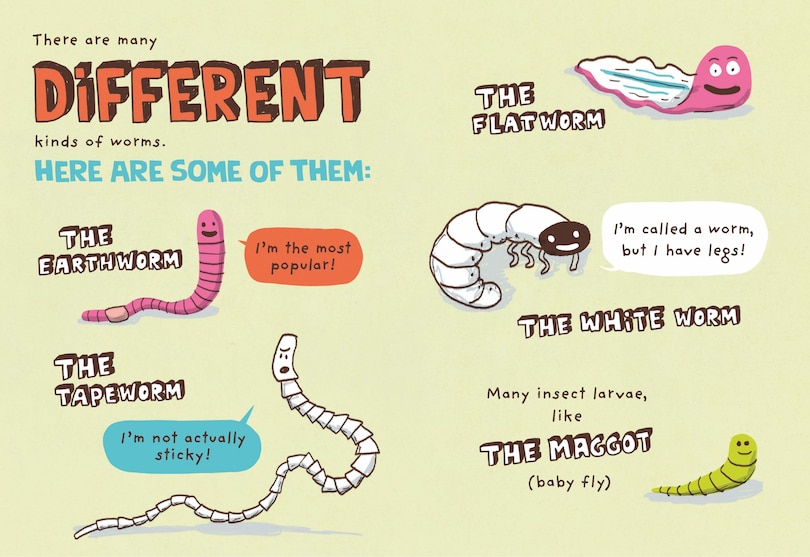 There are many
DiFFERENT
kinds of worms.
HERE ARE SOME OF THEM:
THE
EARTHWORM
I'm the most
popular!
THE
TAPEWORM
I'm not actually
sticky!
THE
FLATWORM
I'm called a worm,
but I have legs!
THE WHiTE WORM
Many insect larvae,
like
THE MAGGOT
(baby fly)